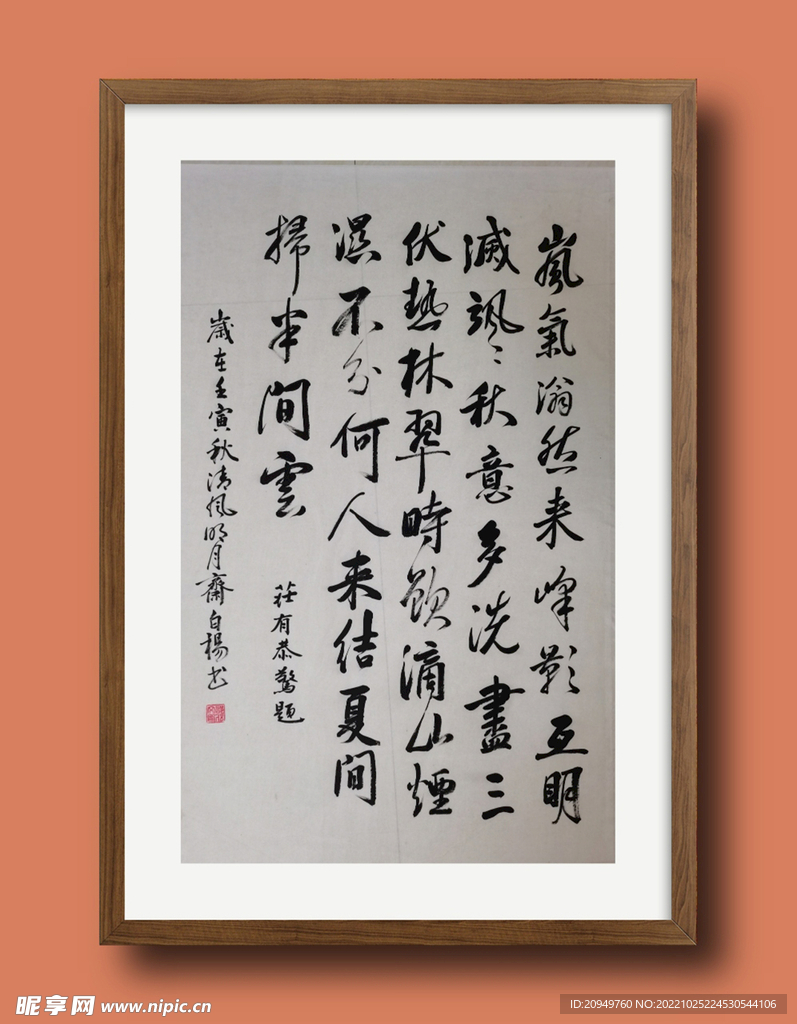 嵐氣滃然来峰影互明
滅颯〻秋意多洗盡三
伏熱林翠時欲滴山煙
濕不分何人来結夏間
掃半間雲
莊有恭題
歲在壬寅秋清風明月齋白楊书
昵享网 www.nipic.cn
ID:20949760 NO:20221025224530544106